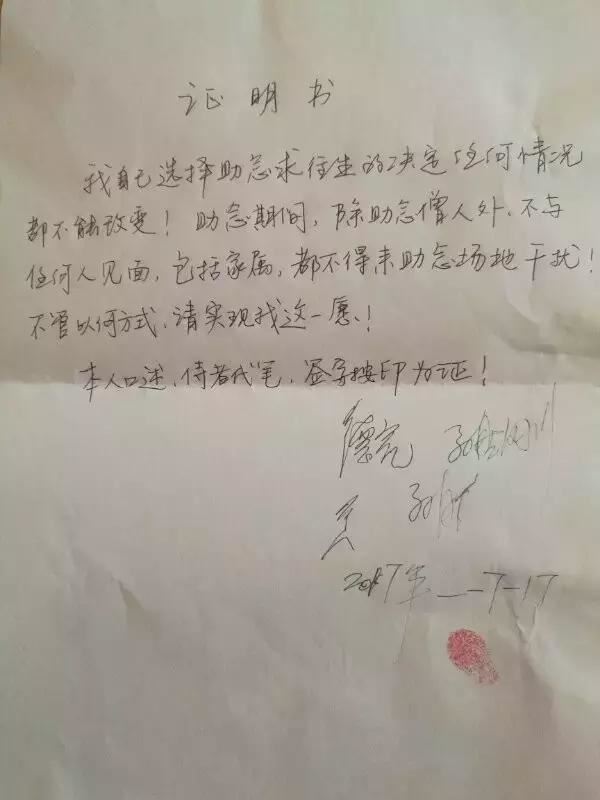 证明书
我自己选择助念求往生的决定任何情况
都不能改变！助念期间，除助念僧人外、不与
任何人见面，包括家属，都不得来助念场地干扰！
不管以何方式、请实现我这一愿、！
本人口述、侍者代笔、签字按印为证！
德完
2017年——7-17